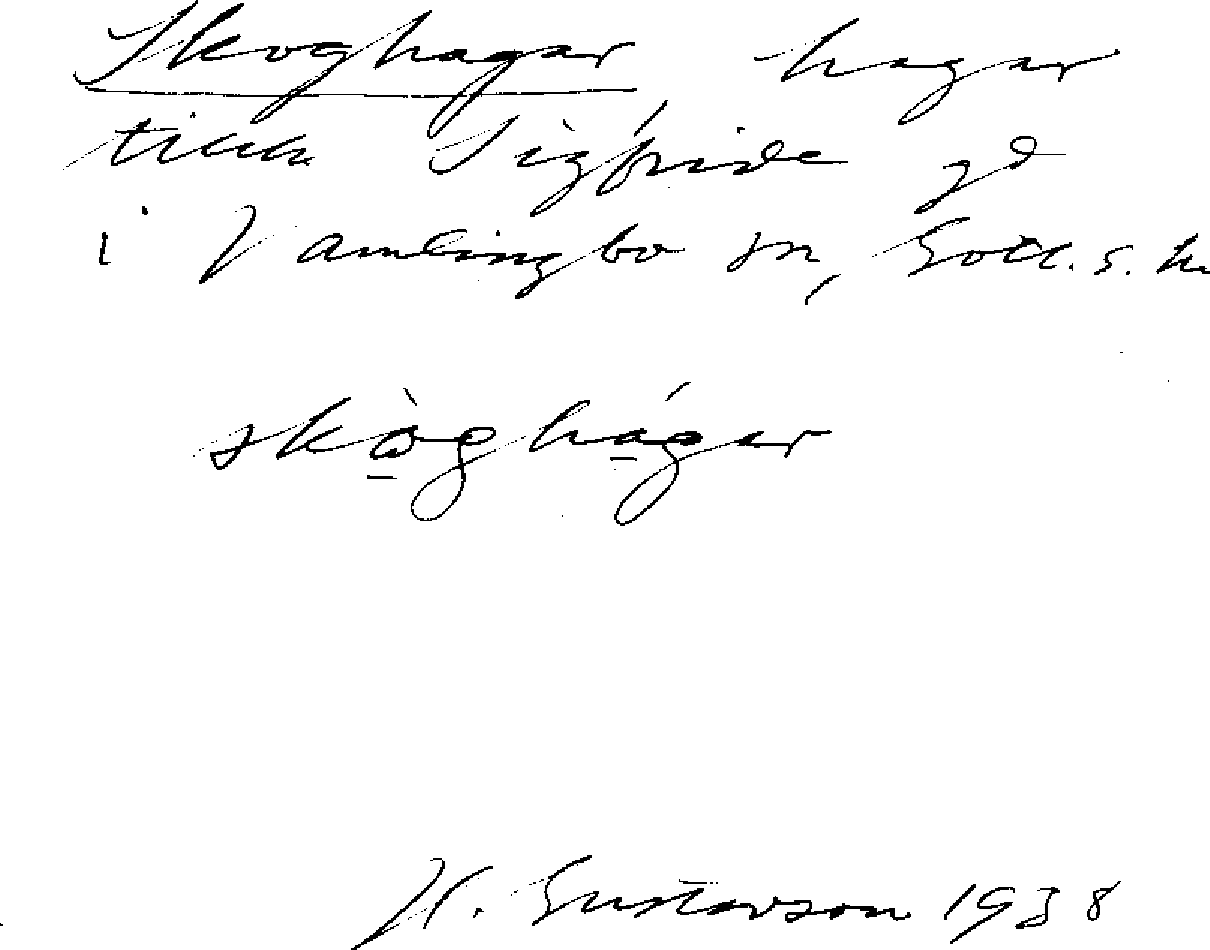 Skoghagar hagar
till Sigfride gd
i Vamlingbo sn, Gotl. s. h.
skòghágar
H. Gustavson 1938